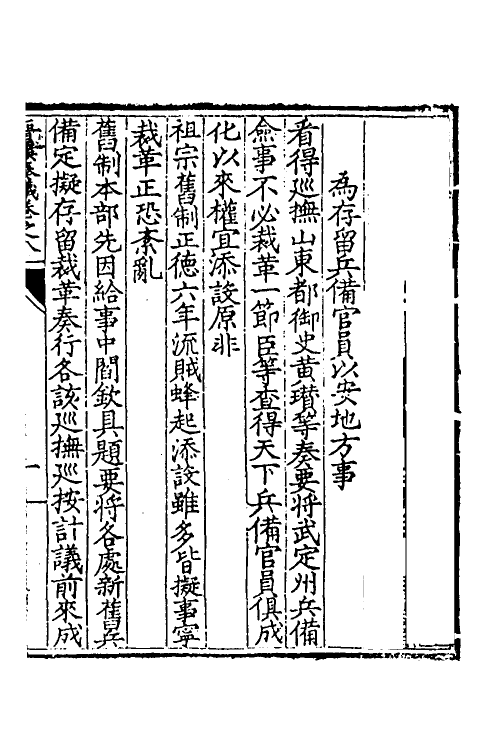 為存留兵備官員以安地方事
看得廵撫山東都御史黄瓚等奏要將武定州兵備
僉事不必裁革一節臣等查得天下兵備官員俱成
化以來權宜添設原非
祖宗舊制正德六年流賊蜂起添設雖多皆擬事寧
裁革正恐紊亂
舊制本部先因給事中閻欽具題要將各處新舊兵
備定擬存留裁革奏行各該廵撫廵按計議前來成